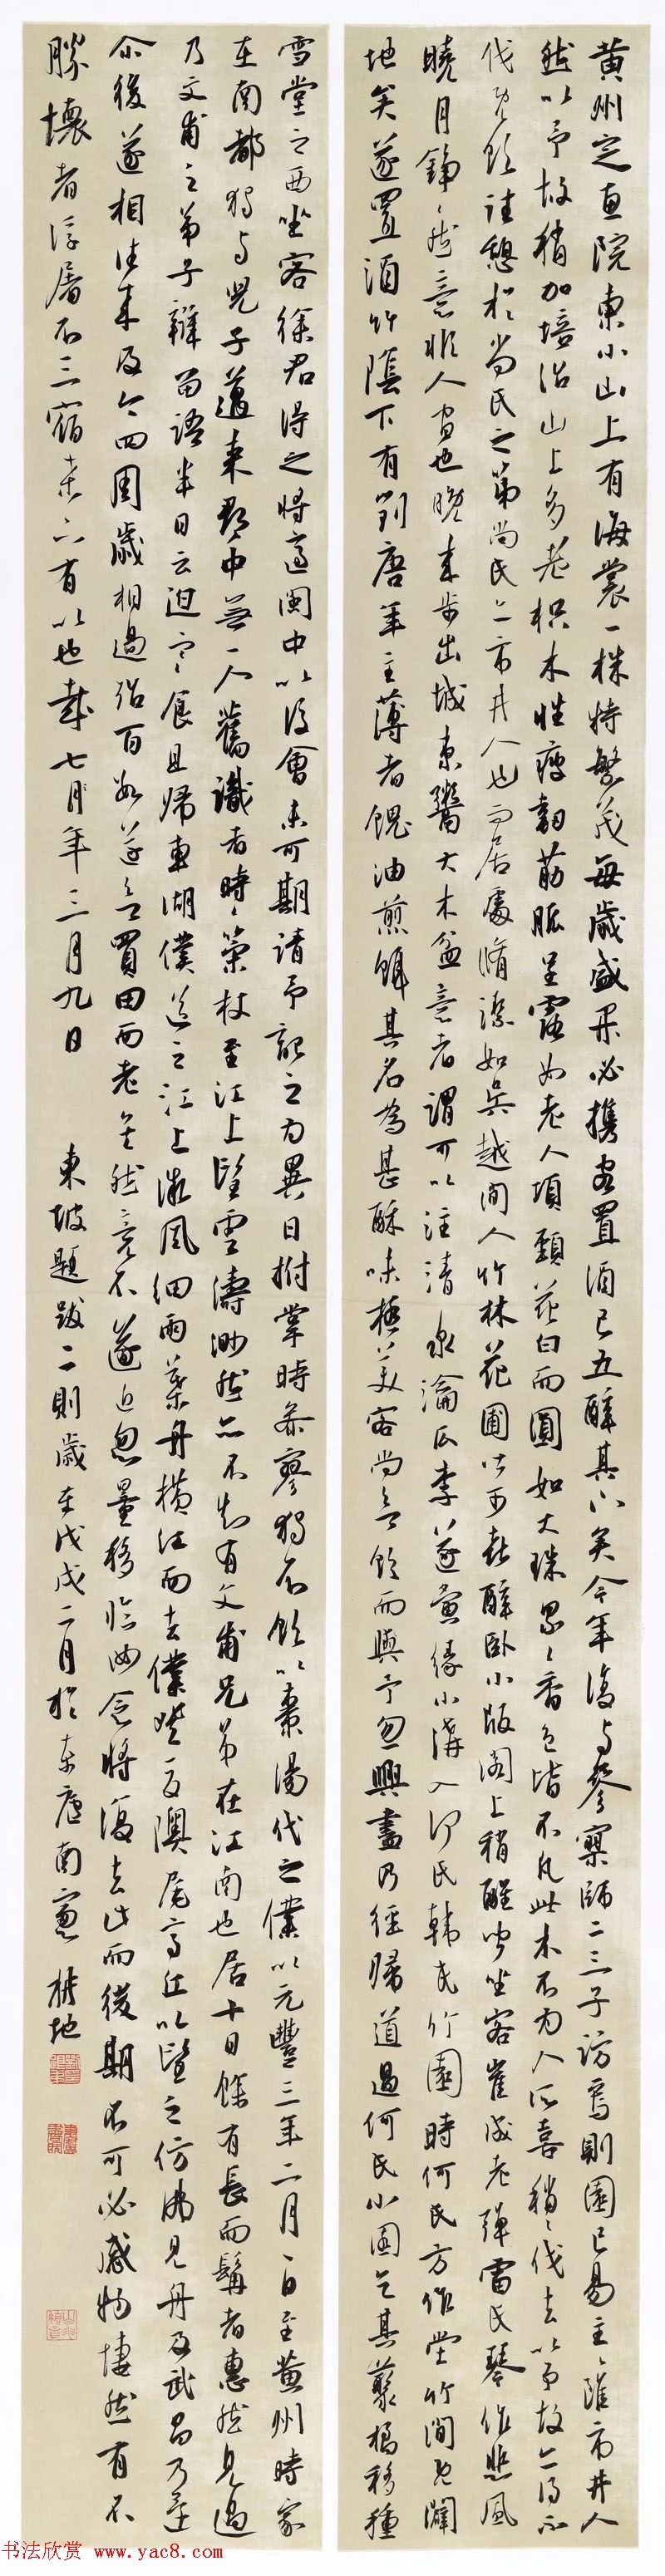 黄州定惠院東小山上有海棠一株特繁茂每歲盛開必携客置酒已五醉其下矣今年復與參寥師二三子訪焉則園已易主主雖市井人
然以予故稍加培治山上多老枳木性瘦韌筋脈呈露如老人項頸花白而圓如大珠累累香色皆不凡此木不為人所喜稍稍伐去以予故亦得不
伐既飲往憩於尚氏之第尚氏亦市井人也而居處脩潔如吳越間人竹林花圃皆可喜醉臥小版閣上稍醒聞坐客崔成老彈雷氏琴作悲風
曉月錚錚然意非人間也晚來步出城東鬻大木盆意者謂可以注清泉瀹瓜李遂夤緣小溝入何氏韓氏竹園時何氏方作堂竹間既闢
地矣遂置酒竹陰下有劉唐年主薄者餽油煎餌其名為甚酥味極美客尚欲飲而興予忽興盡乃徑歸道過何氏小圃乞其藂橘移種
雪堂之西坐客徐君得之將適閩中以後會未可期請予記之為異日拊掌時參寥獨不飲以棗湯代之僕以元豐三年二月一日至黄州時家
在南都獨與兒子邁來郡中無一人舊識者時時策杖至江上望雲濤渺然亦不知有文甫兄弟在江南也居十日餘有長而髯者惠然見過
乃文甫之弟子辯留語半日云迫寒食且歸東湖僕送之江上微風細雨葉舟横江而去僕登夏澳尾高丘以望之仿佛見舟及武昌乃還
尒後遂相往來及今四周歲相過殆百數遂欲買田而老焉然竟不遂近忽量移臨汝念將復去此而後期不可必感物悽然有不
勝懷者浮屠不三宿桑下有以也哉七月年三月九日 東坡題跋二則歲在戊戌二月於東廬南窻 耕地
书法欣赏 www.yac8.com